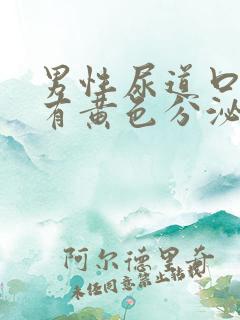 男性尿道口
有黄色分泌
阿尔德里奇
未经同意禁止转载